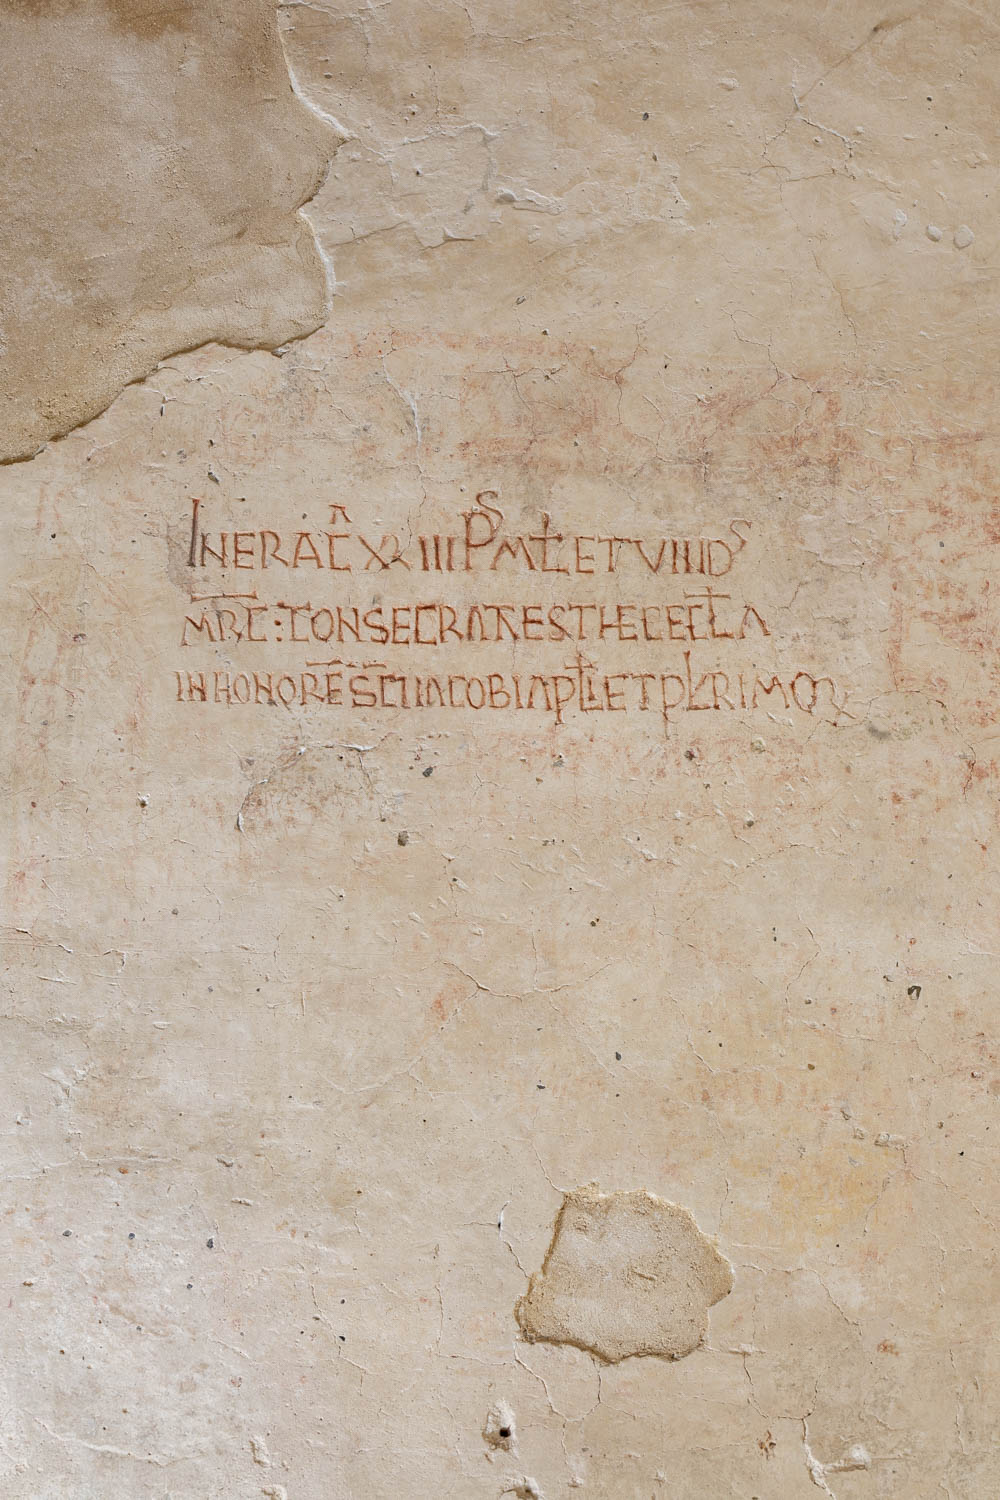 INERAC̄ XX III PˢMŁETVIIIDˢ
M̄R̄C:CONSECRATAESTHECECŁA
INHONORĒS̄C̄IIACOBIAPŁIETPŁRIMOꝜ